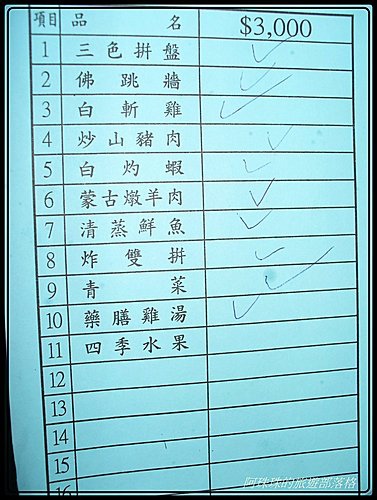 項目 品名 $3,000
1 三色拼盤 ✓
2 佛跳牆 ✓
3 白斬雞 ✓
4 炒山豬肉 ✓
5 白灼蝦 ✓
6 蒙古燉羊肉 ✓
7 清蒸鮮魚 ✓
8 炸雙拼 ✓
9 青菜 ✓
10 藥膳雞湯 ✓
11 四季水果
12
13
14
15
16
阿珠珠的旅遊部落格